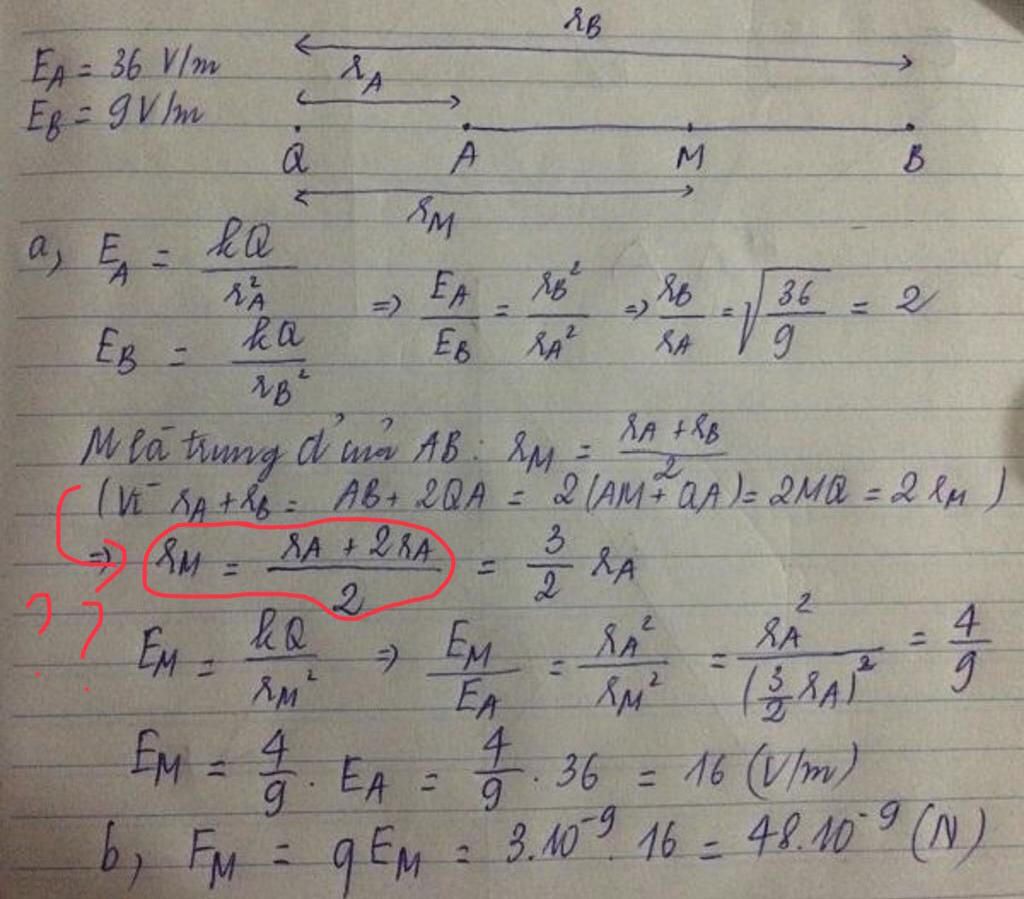 r_B
E_A = 36 V/m
r_A
E_B = 9 V/m
Q A M B
r_M
a, E_A = kQ / r_A²
E_B = kQ / r_B²
=> E_A / E_B = r_B² / r_A² => r_B / r_A = √(36/9) = 2
M là trung đ' của AB: r_M = (r_A + r_B) / 2
(Vì r_A + r_B = AB + 2QA = 2(AM + QA) = 2MQ = 2r_M)
=> r_M = (r_A + 2r_A) / 2 = 3/2 r_A
? ?
E_M = kQ / r_M² => E_M / E_A = r_A² / r_M² = r_A² / (3/2 r_A)² = 4/9
E_M = 4/9 . E_A = 4/9 . 36 = 16 (V/m)
b, F_M = qE_M = 3.10⁻⁹ . 16 = 48.10⁻⁹ (N)